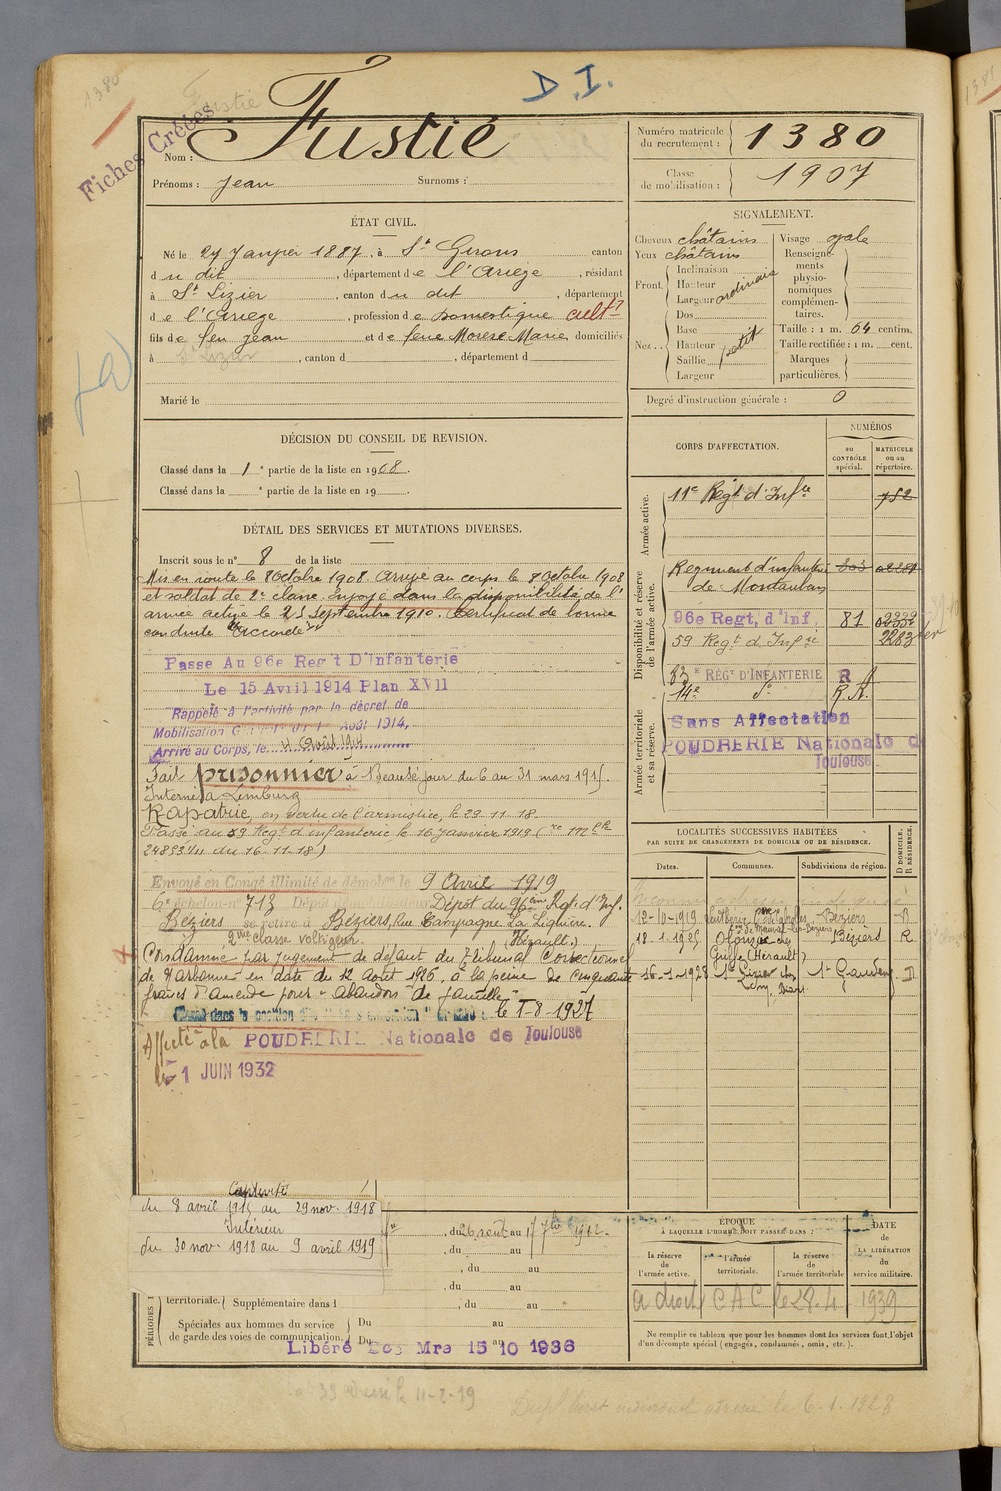 1380
Fustié
D.I.
Fiches Créées
Nom : Fustié
Prénoms : Jean Surnoms :
Numéro matricule du recrutement : 1380
Classe de mobilisation : 1907
ÉTAT CIVIL.
Né le 24 Janvier 1887, à St Girons canton
du dit, département de l'Ariège, résidant
à St Lizier, canton du dit, département
de l'Ariège, profession de domestique cultr
fils de feu Jean et de feue Morère Marie domiciliés
à St Lizier, canton d , département d
Marié le
SIGNALEMENT.
Cheveux châtains
Yeux châtains
Front Inclinaison
Hauteur
Largeur ordinaire
Nez Dos
Base
Hauteur petit
Saillie
Largeur
Visage ovale
Renseignements physionomiques complémentaires.
Taille : 1 m. 64 centim.
Taille rectifiée : 1 m. cent.
Marques particulières.
Degré d'instruction générale : 0
DÉCISION DU CONSEIL DE REVISION.
Classé dans la 1e partie de la liste en 1908.
Classé dans la e partie de la liste en 19 .
DÉTAIL DES SERVICES ET MUTATIONS DIVERSES.
Inscrit sous le n° 8 de la liste
Mis en route le 8 Octobre 1908. Arrivé au corps le 8 Octobre 1908
et soldat de 2e classe. Envoyé dans la disponibilité de l'
armée active le 25 Septembre 1910. Certificat de bonne
conduite "Accordé"
Passe Au 96e Reg t D'Infanterie
Le 15 Avril 1914 Plan XVII
Rappelé à l'activité par le décret de
Mobilisation Générale du 1er Août 1914.
Arrivé au Corps, le 4 Août 1914
Fait prisonnier à Beauséjour du 6 au 31 mars 1915.
Interné à Limburg
Rapatrié, en vertu de l'armistice, le 29-11-18.
Passé au 59 Regt d'infanterie le 16 Janvier 1919 (
24893 1/11 du 16-11-18)
Envoyé en Congé illimité de démobon le 9 Avril 1919
6e échelon n° 713 Dépôt démobilisateur Dépôt du 96ème Rgt. d'Inf.
Béziers se retire à Béziers, Rue Campagne La Liguière.
2me classe voltigeur. (Hérault.)
Condamné par jugement de défaut du Tribunal Correctionnel
de Narbonne en date du 12 août 1926, à la peine de cinquante
francs d'amende pour "abandon de famille"
Classé dans la position dite le 1-8-1927
Affecté à la POUDRERIE Nationale de Toulouse
le 1 JUIN 1932
CORPS D'AFFECTATION.
NUMÉROS
au CONTRÔLE spécial.
MATRICULE ou au répertoire.
Armée active.
11e Régt d'Infie 752
Disponibilité et réserve de l'armée active.
Régiment d'infanterie de Montauban
96e Regt, d'Inf. 81
59 Regt d'Infie 2283
Armée territoriale et sa réserve.
83e RÉGt D'INFANTERIE R
14e do R.A.
Sans Affectation
POUDRERIE Nationale de
Toulouse
LOCALITÉS SUCCESSIVES HABITÉES
PAR SUITE DE CHANGEMENTS DE DOMICILE OU DE RÉSIDENCE.
Dates. Communes. Subdivisions de région.
D DOMICILE. R RÉSIDENCE.
12-10-1919 Béziers R
18-1-1925 Olonzac Béziers R
Griffe (Hérault)
16-1-1928 St Lizier St Gaudens D
Captivité
du 8 avril 1915 au 29 nov. 1918
Intérieur
du 30 nov. 1918 au 9 avril 1919
, du 26 août au 17 7bre 1912.
, du au
, du au
, du au
PÉRIODES
territoriale. Supplémentaire dans l , du au
Spéciales aux hommes du service de garde des voies de communication. Du au
Du au
Libéré Des Mre 15 10 1936
ÉPOQUE
À LAQUELLE L'HOMME DOIT PASSER DANS :
la réserve de l'armée active.
l'armée territoriale.
la réserve de l'armée territoriale
DATE DE LA LIBÉRATION du service militaire.
a droit CAC le 28-4-1939
Ne remplir ce tableau que pour les hommes dont les services font l'objet
d'un décompte spécial (engagés, condamnés, omis, etc.).
11-2-19
le 6-1-1928